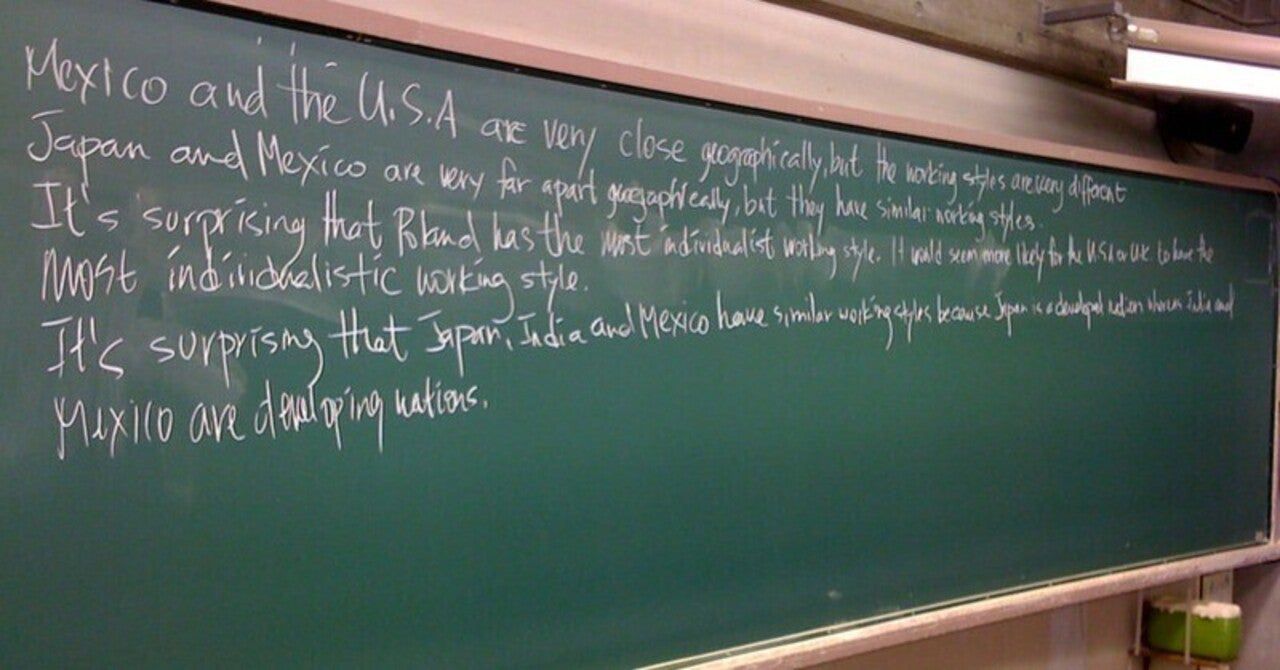 Mexico and the U.S.A are very close geographically, but the working styles are very different
Japan and Mexico are very far apart geographically, but they have similar working styles.
It's surprising that Poland has the most individualist working style. It would seem more likely for the U.S.A or U.K. to have the
most individualistic working style.
It's surprising that Japan, India and Mexico have similar working styles because Japan is a developed nation whereas India and
Mexico are developing nations.